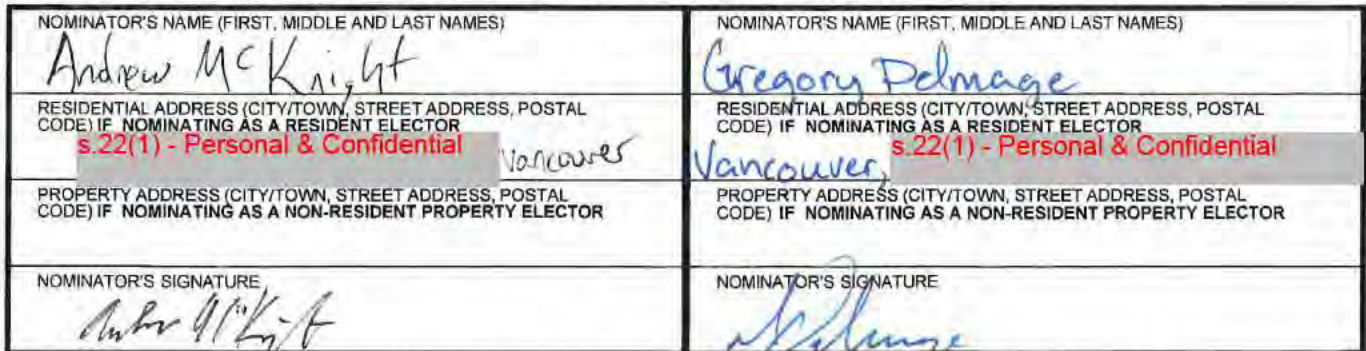 NOMINATOR'S NAME (FIRST, MIDDLE AND LAST NAMES)
Andrew McKnight
RESIDENTIAL ADDRESS (CITY/TOWN, STREET ADDRESS, POSTAL
CODE) IF NOMINATING AS A RESIDENT ELECTOR
s.22(1) - Personal & Confidential
Vancouver
PROPERTY ADDRESS (CITY/TOWN, STREET ADDRESS, POSTAL
CODE) IF NOMINATING AS A NON-RESIDENT PROPERTY ELECTOR
NOMINATOR'S SIGNATURE
Andrew McKnight
NOMINATOR'S NAME (FIRST, MIDDLE AND LAST NAMES)
Gregory Delmage
RESIDENTIAL ADDRESS (CITY/TOWN, STREET ADDRESS, POSTAL
CODE) IF NOMINATING AS A RESIDENT ELECTOR
Vancouver, s.22(1) - Personal & Confidential
PROPERTY ADDRESS (CITY/TOWN, STREET ADDRESS, POSTAL
CODE) IF NOMINATING AS A NON-RESIDENT PROPERTY ELECTOR
NOMINATOR'S SIGNATURE